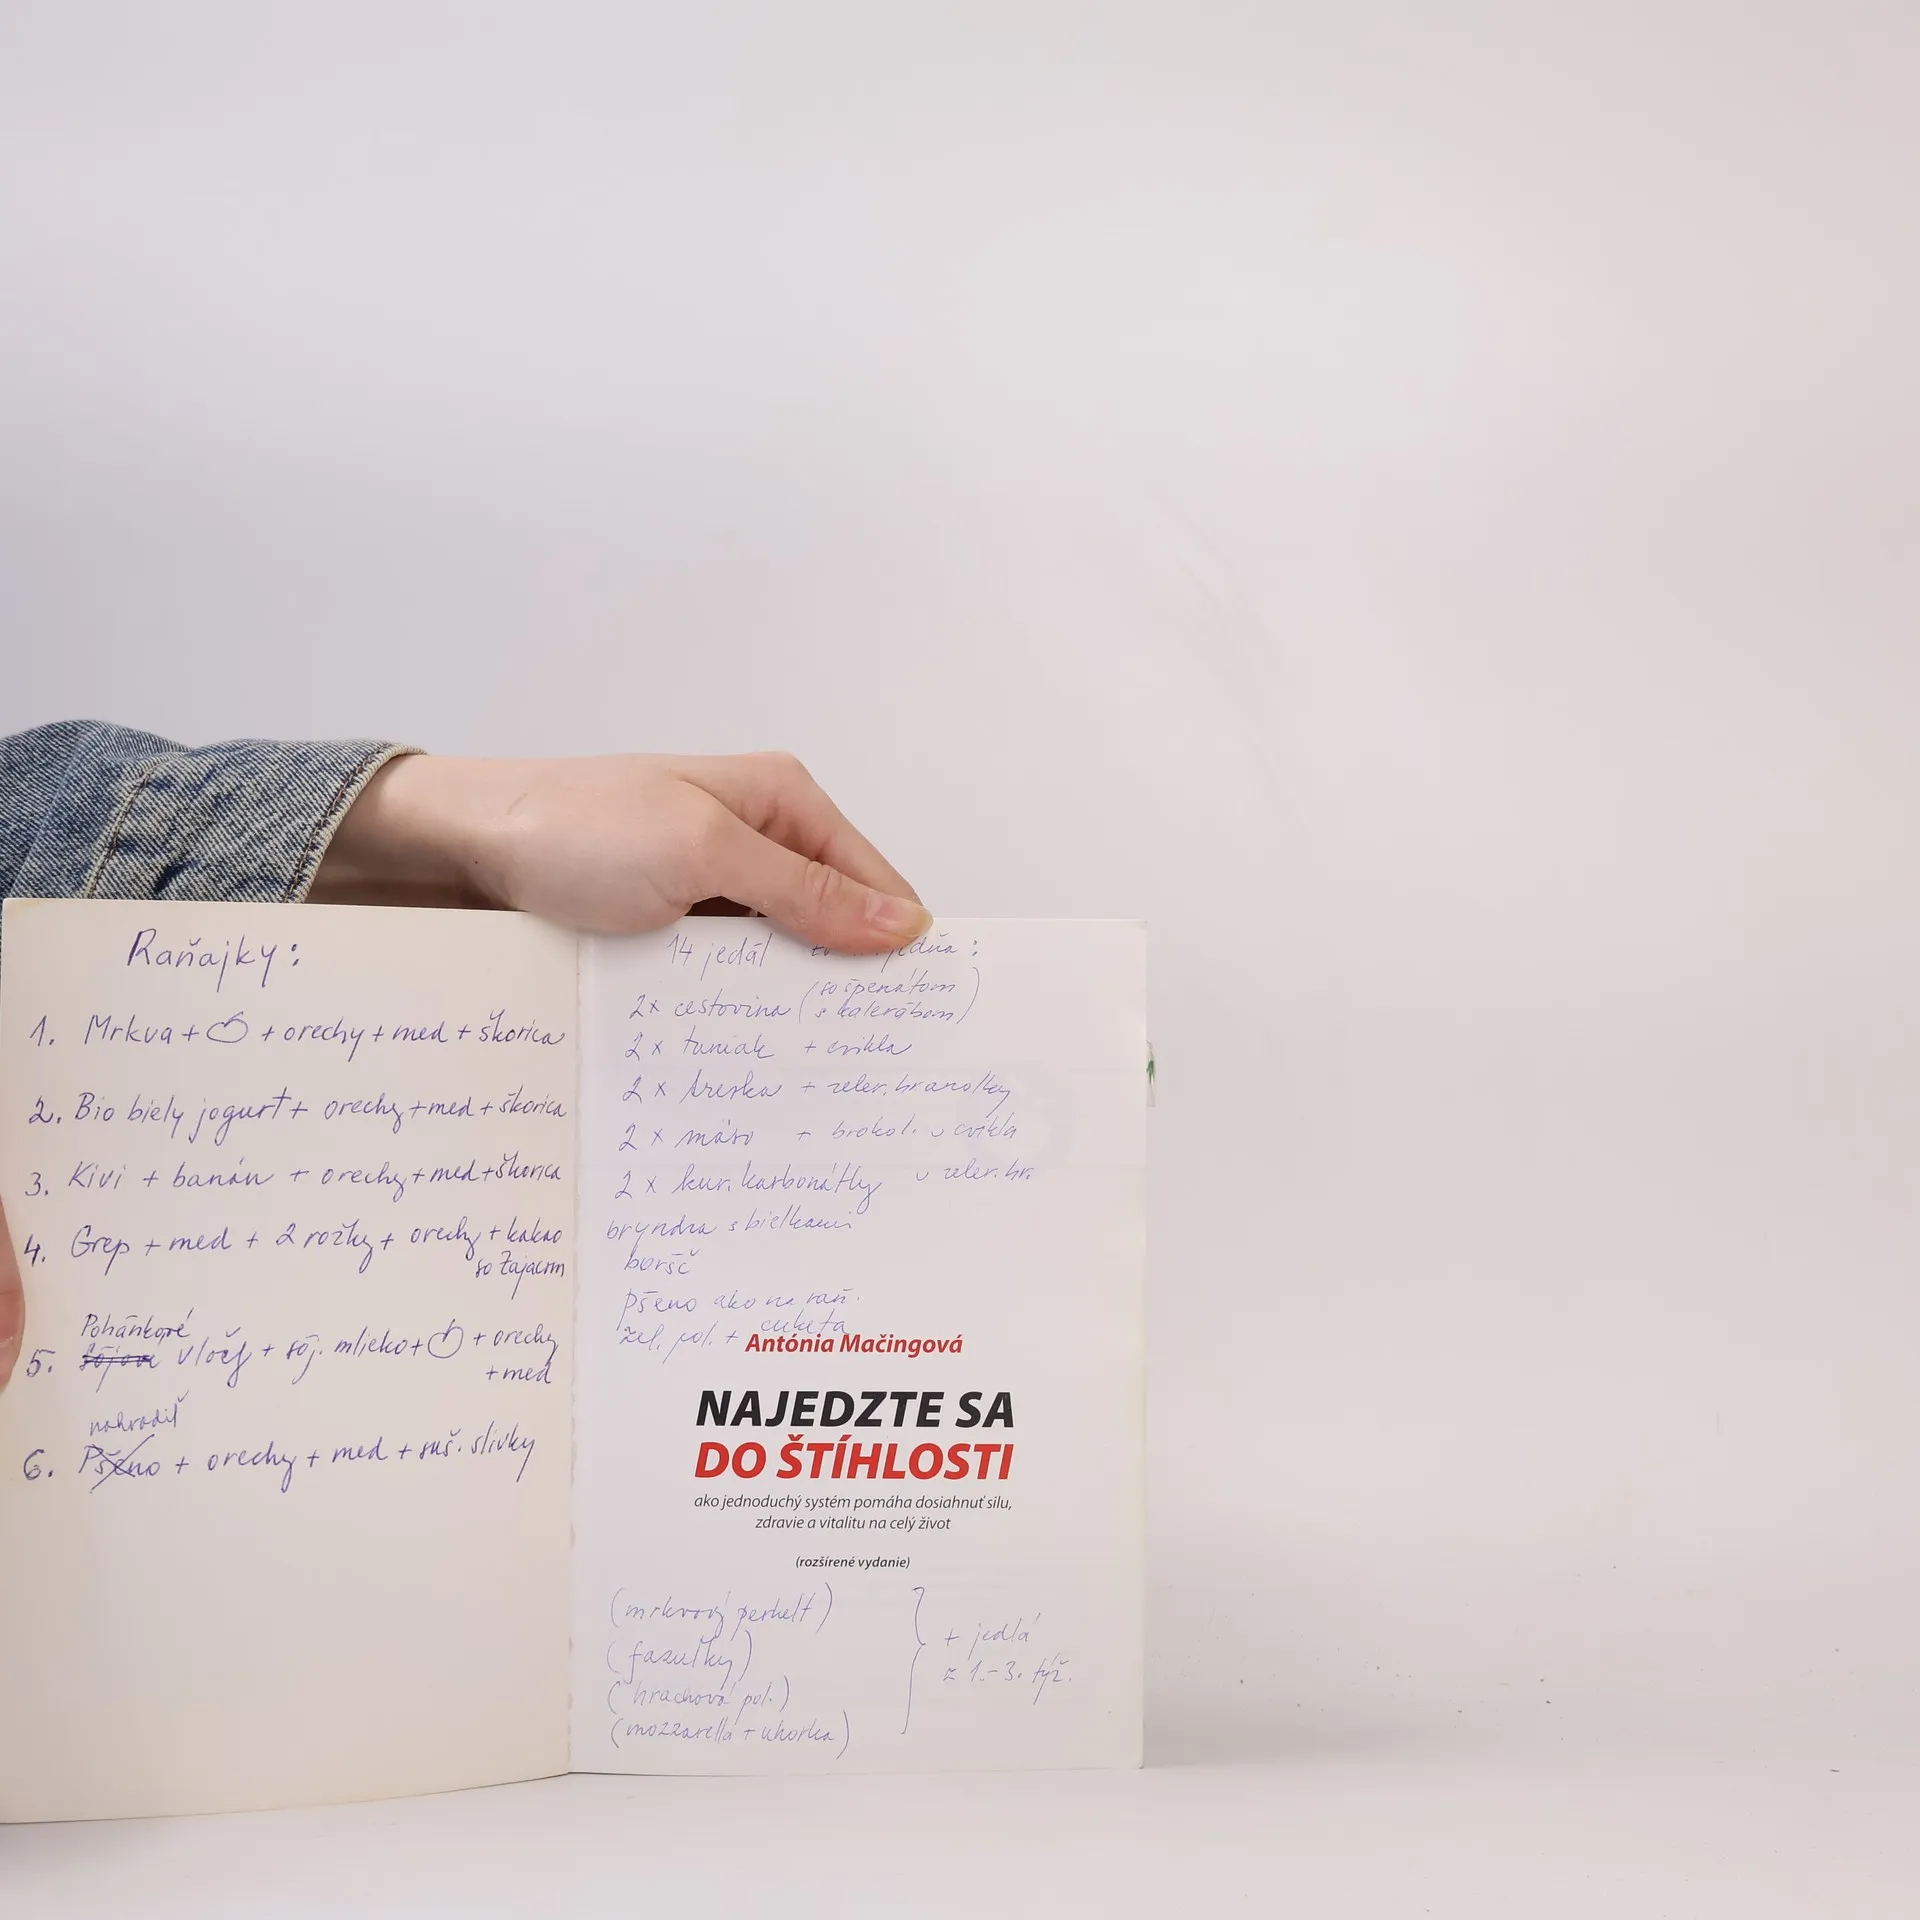 Raňajky:
1. Mrkva + + orechy + med + škorica
2. Bio biely jogurt + orechy + med + škorica
3. Kivi + banán + orechy + med + škorica
4. Grep + med + 2 rožky + orechy + kakao
so Zajacom
Pohánkové
5. sójové vločky + sój. mlieko + + orechy
+ med
nahradiť
6. Pšeno + orechy + med + suš. slivky
14 jedál :
2x cestovina (so špenátom
s kalerábom)
2 x tuniak + cvikla
2 x treska + zeler. hranolky
2 x mäso + brokol. u cvikla
2 x kur. karbonátky u zeler. hr.
bryndza s bielkami
boršč
pšeno ako na raň.
zel. pol. + cuketa
Antónia Mačingová
NAJEDZTE SA
DO ŠTÍHLOSTI
ako jednoduchý systém pomáha dosiahnuť silu,
zdravie a vitalitu na celý život
(rozšírené vydanie)
(mrkvový perkelt)
(fazuľky)
(hrachová pol.)
(mozzarella + uhorka)
+ jedlá
z 1.-3. týž.